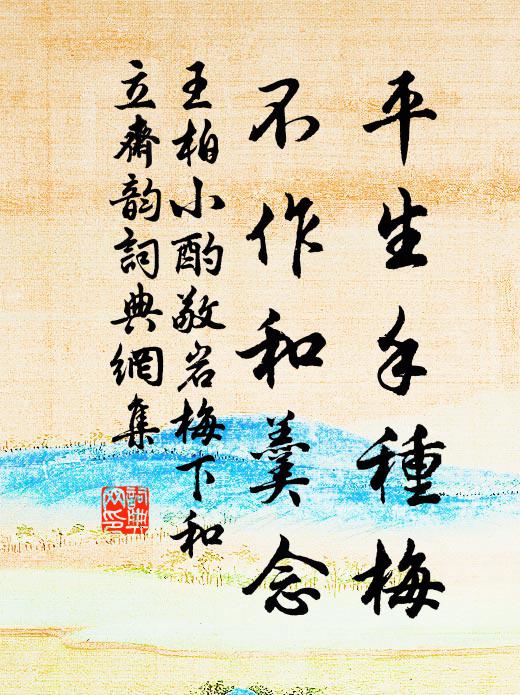 平生手種梅
不作和羹念
王柏小酌敬岩梅下和
立齋韵詞典網集
詞典網印